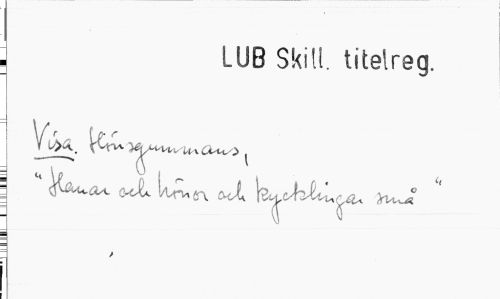 LUB Skill. titelreg.
Visa. Hönsgummans,
"Hanar och hönor och kycklingar små"